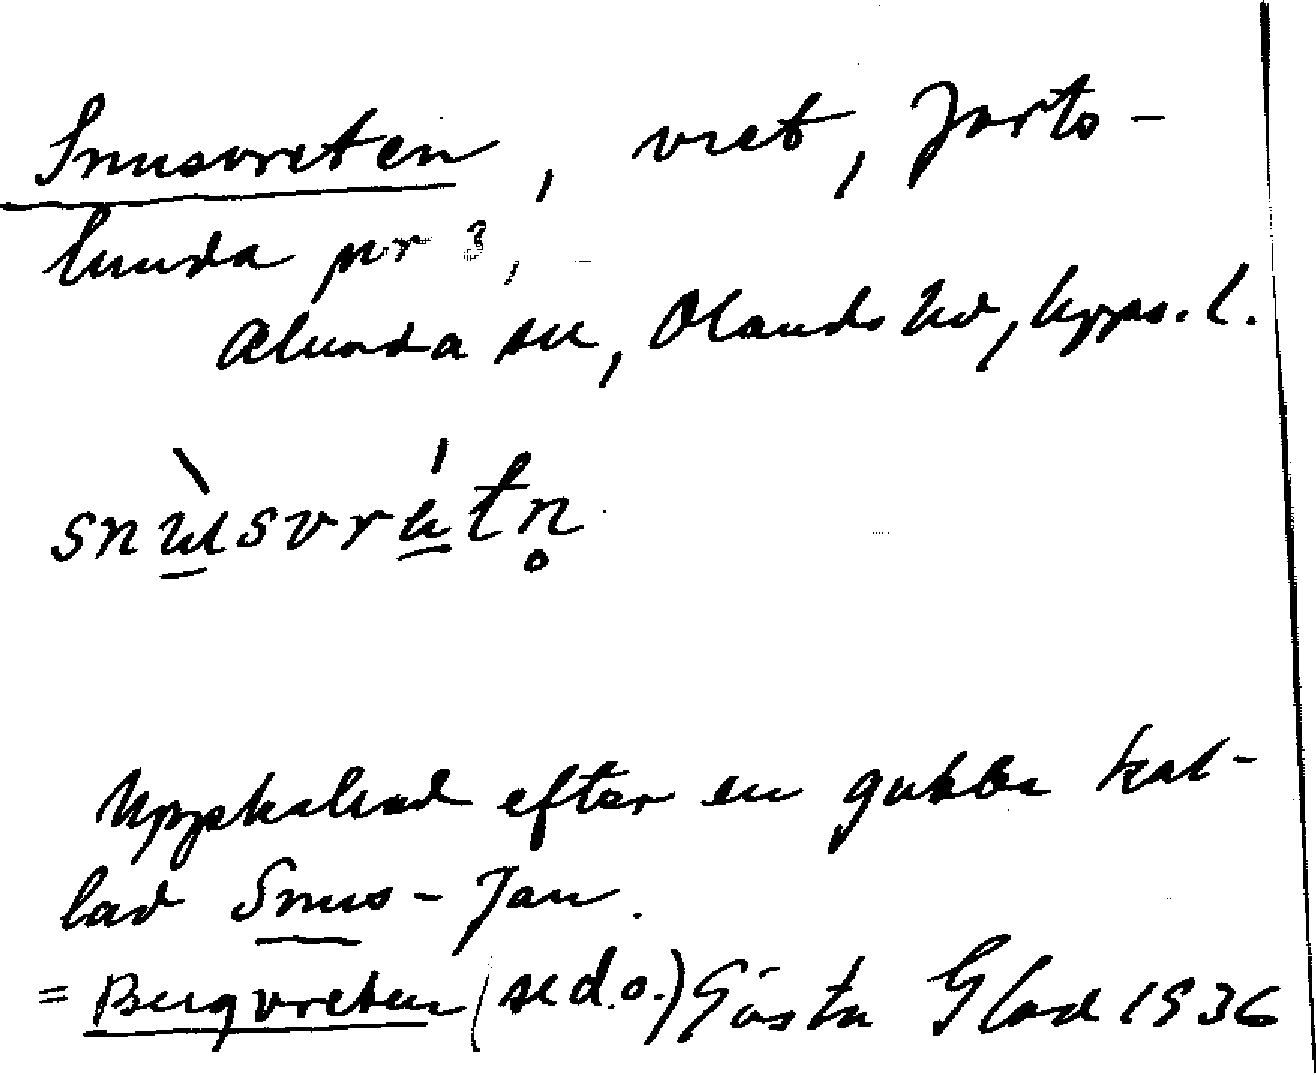 Snusvreten, vret, Jorts-
lunda nr 3,
Alunda sn, Olands hd, Upps. l.
snùsvrétn̥
Uppkallad efter en gubbe kal-
lad Snus-Jan.
= Bergvreten (se d.o.) Gösta Glad 1936